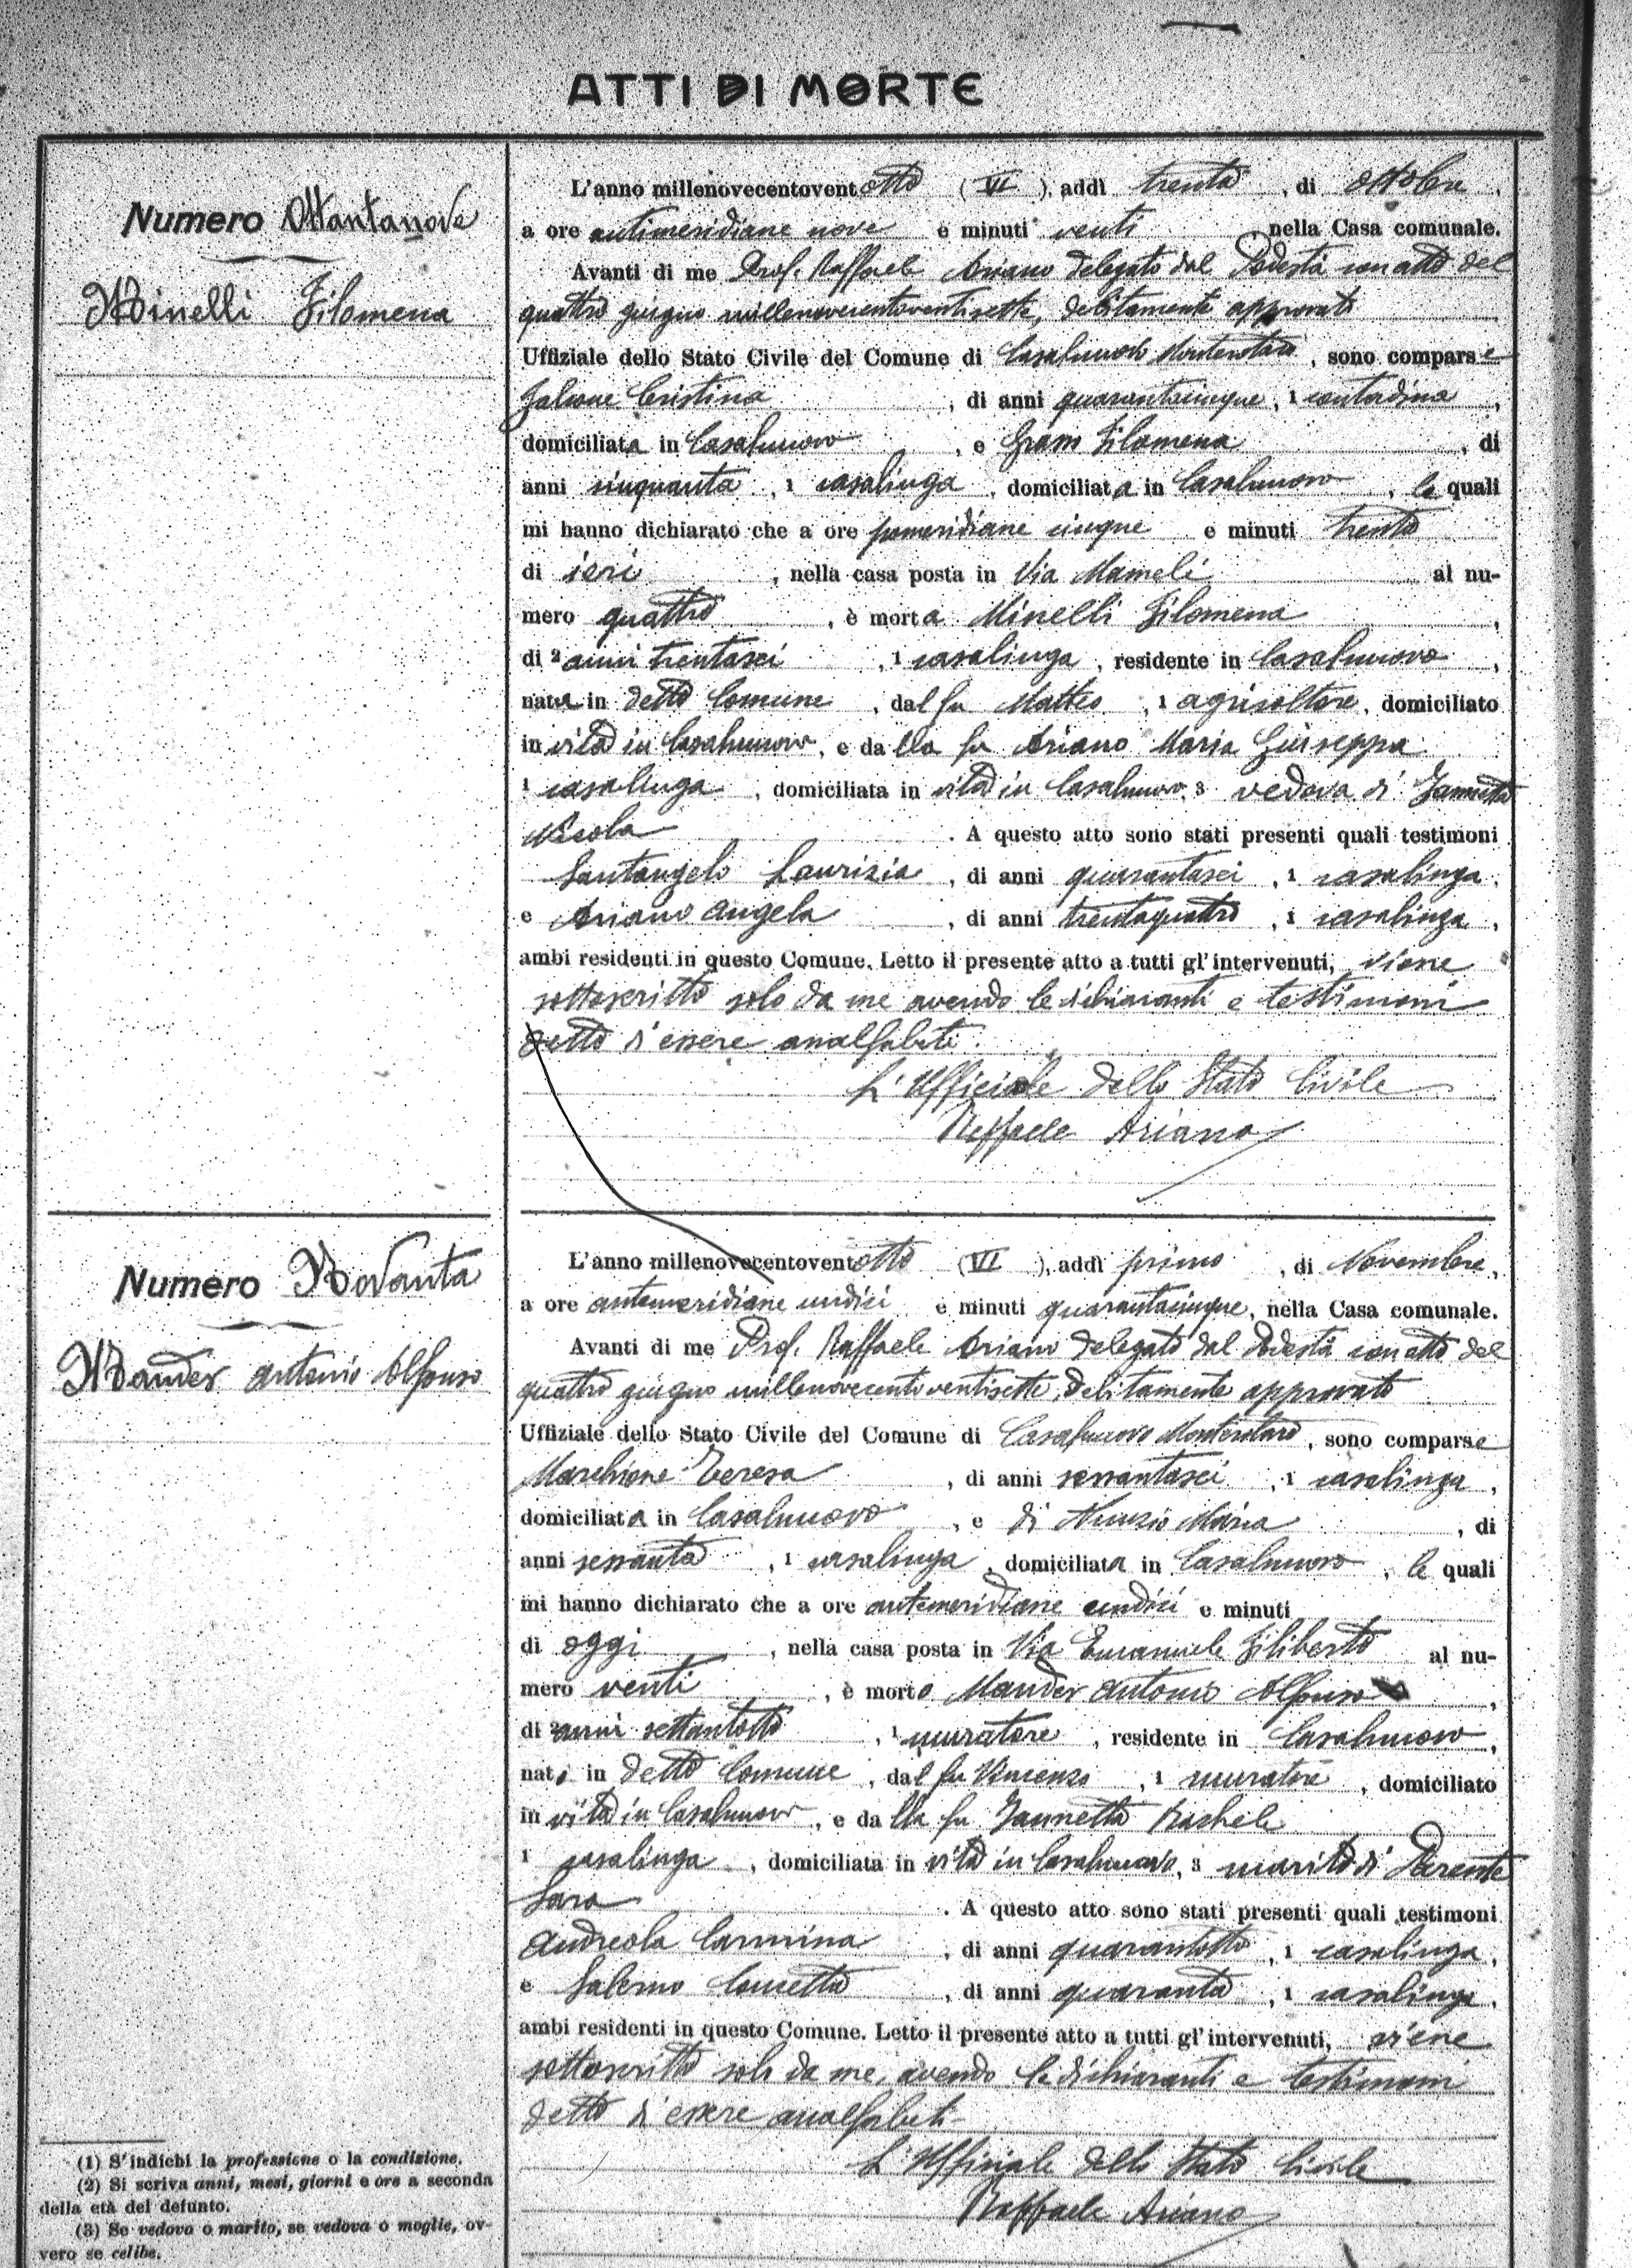 ATTI DI MORTE
Numero Ottantanove
Minelli Filomena
L'anno millenovecentoventotto (VI), addì trenta, di ottobre,
a ore antimeridiane nove e minuti venti nella Casa comunale.
Avanti di me Prof. Raffaele Ariano delegato dal Podestà con atto del
quattro giugno millenovecentoventisette, debitamente approvato
Uffiziale dello Stato Civile del Comune di Casalnuovo Monterotaro, sono comparse
Falcone Cristina, di anni quarantacinque, 1 contadina,
domiciliata in Casalnuovo, e Grosso Filomena, di
anni cinquanta, 1 casalinga, domiciliata in Casalnuovo, le quali
mi hanno dichiarato che a ore pomeridiane cinque e minuti trenta
di ieri, nella casa posta in Via Mameli al nu-
mero quattro, è morta Minelli Filomena,
di 2 anni trentasei, 1 casalinga, residente in Casalnuovo,
nata in detto Comune, dal fu Matteo, 1 agricoltore, domiciliato
in vita in Casalnuovo, e dalla fu Ariano Maria Giuseppa
1 casalinga, domiciliata in vita in Casalnuovo, 3 vedova di Iannetta
Nicola. A questo atto sono stati presenti quali testimoni
Santangelo Laurizia, di anni quarantasei, 1 casalinga,
e Ariano Angela, di anni trentaquattro, 1 casalinga,
ambi residenti in questo Comune. Letto il presente atto a tutti gl'intervenuti, viene
sottoscritto solo da me avendo le dichiaranti e testimoni
detto d'essere analfabeti.
L'Ufficiale dello Stato Civile
Raffaele Ariano
Numero Novanta
Mander Antonio Alfonso
L'anno millenovecentoventotto (VI), addì primo, di Novembre,
a ore antimeridiane undici e minuti quarantacinque, nella Casa comunale.
Avanti di me Prof. Raffaele Ariano delegato dal Podestà con atto del
quattro giugno millenovecentoventisette, debitamente approvato
Uffiziale dello Stato Civile del Comune di Casalnuovo Monterotaro, sono comparse
Marchione Teresa, di anni sessantasei, 1 casalinga,
domiciliata in Casalnuovo, e di Nunzio Maria, di
anni sessanta, 1 casalinga, domiciliata in Casalnuovo, le quali
mi hanno dichiarato che a ore antimeridiane undici e minuti
di oggi, nella casa posta in Via Emanuele Filiberto al nu-
mero venti, è morto Mander Antonio Alfonso,
di 2 anni settantotto, 1 muratore, residente in Casalnuovo,
nato in detto Comune, dal fu Vincenzo, 1 muratore, domiciliato
in vita in Casalnuovo, e dalla fu Iannetta Rachele
1 casalinga, domiciliata in vita in Casalnuovo, 3 marito di Parente
Sara. A questo atto sono stati presenti quali testimoni
Andreola Carmina, di anni quarantotto, 1 casalinga,
e Salerno Concetta, di anni quaranta, 1 casalinga,
ambi residenti in questo Comune. Letto il presente atto a tutti gl'intervenuti, viene
sottoscritto solo da me, avendo le dichiaranti e testimoni
detto d'essere analfabeti.
L'Ufficiale dello Stato Civile
Raffaele Ariano
(1) S'indichi la professione o la condizione.
(2) Si scriva anni, mesi, giorni e ore a seconda
della età del defunto.
(3) Se vedovo o marito, se vedova o moglie, ov-
vero se celibe.